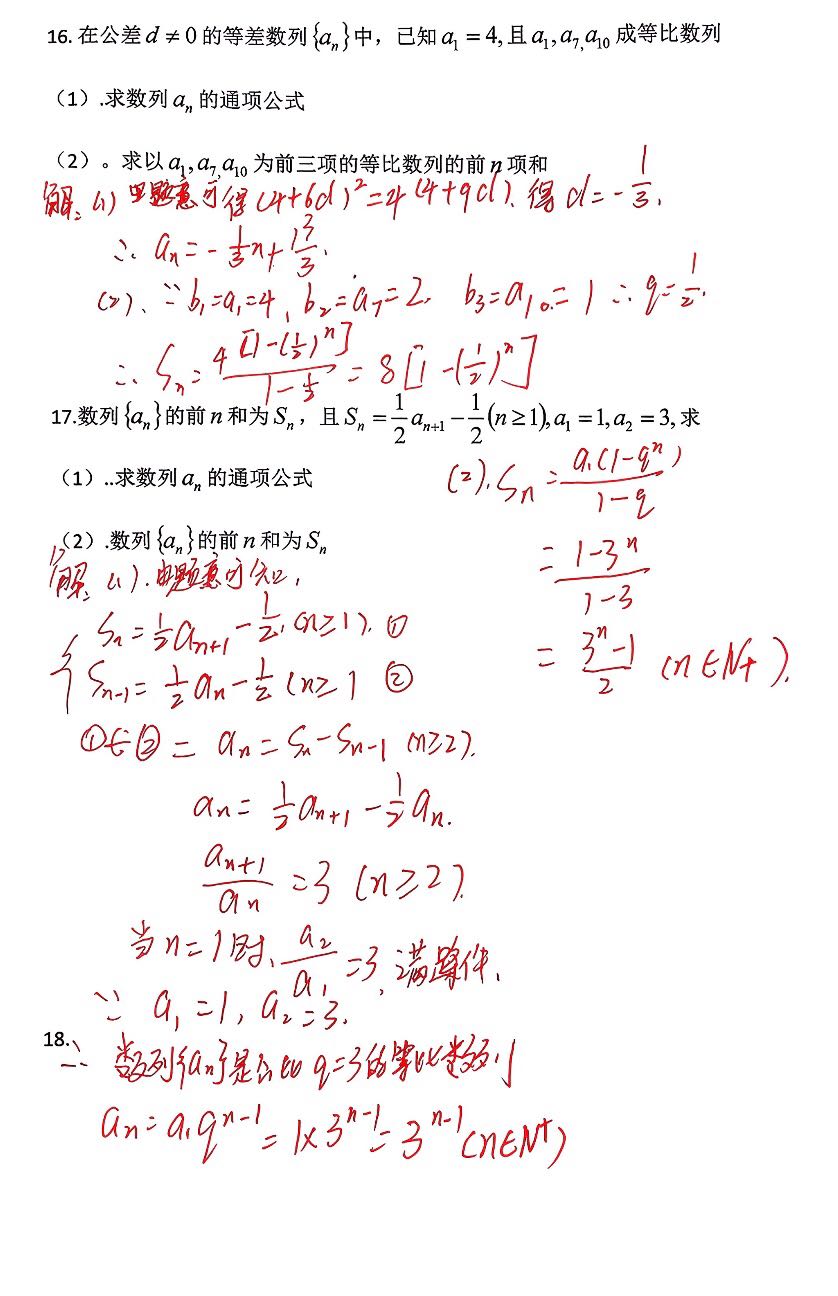 16. 在公差 d ≠ 0 的等差数列 {aₙ} 中，已知 a₁ = 4, 且 a₁, a₇, a₁₀ 成等比数列
（1）.求数列 aₙ 的通项公式
（2）。求以 a₁, a₇, a₁₀ 为前三项的等比数列的前 n 项和
解：(1) 由题意可得 (4+6d)² = 4(4+9d). 得 d = -1/3.
∴ aₙ = -1/3 n + 13/3.
(2)、∵ b₁ = a₁ = 4, b₂ = a₇ = 2. b₃ = a₁₀ = 1 ∴ q = 1/2.
∴ Sₙ = 4[1-(1/2)ⁿ] / (1-1/2) = 8[1-(1/2)ⁿ]
17.数列 {aₙ} 的前 n 和为 Sₙ，且 Sₙ = 1/2 aₙ₊₁ - 1/2 (n ≥ 1), a₁ = 1, a₂ = 3, 求
（1）..求数列 aₙ 的通项公式
（2）.数列 {aₙ} 的前 n 和为 Sₙ
解：(1). 由题意可知，
Sₙ = 1/2 aₙ₊₁ - 1/2. (n ≥ 1). ①
Sₙ₋₁ = 1/2 aₙ - 1/2 (n ≥ 1 ②
① ② = aₙ = Sₙ - Sₙ₋₁ (n ≥ 2).
aₙ = 1/2 aₙ₊₁ - 1/2 aₙ.
aₙ₊₁ / aₙ = 3 (n ≥ 2).
当 n = 1 时、a₂ / a₁ = 3, 满 条件.
∵ a₁ = 1, a₂ = 3.
18.
∴ 数列{aₙ}是公比 q = 3 的等比数列
aₙ = a₁qⁿ⁻¹ = 1×3ⁿ⁻¹ = 3ⁿ⁻¹ (n∈N⁺)
(2). Sₙ = a₁(1-qⁿ) / (1-q)
= (1-3ⁿ) / (1-3)
= (3ⁿ-1) / 2 (n∈N₊).